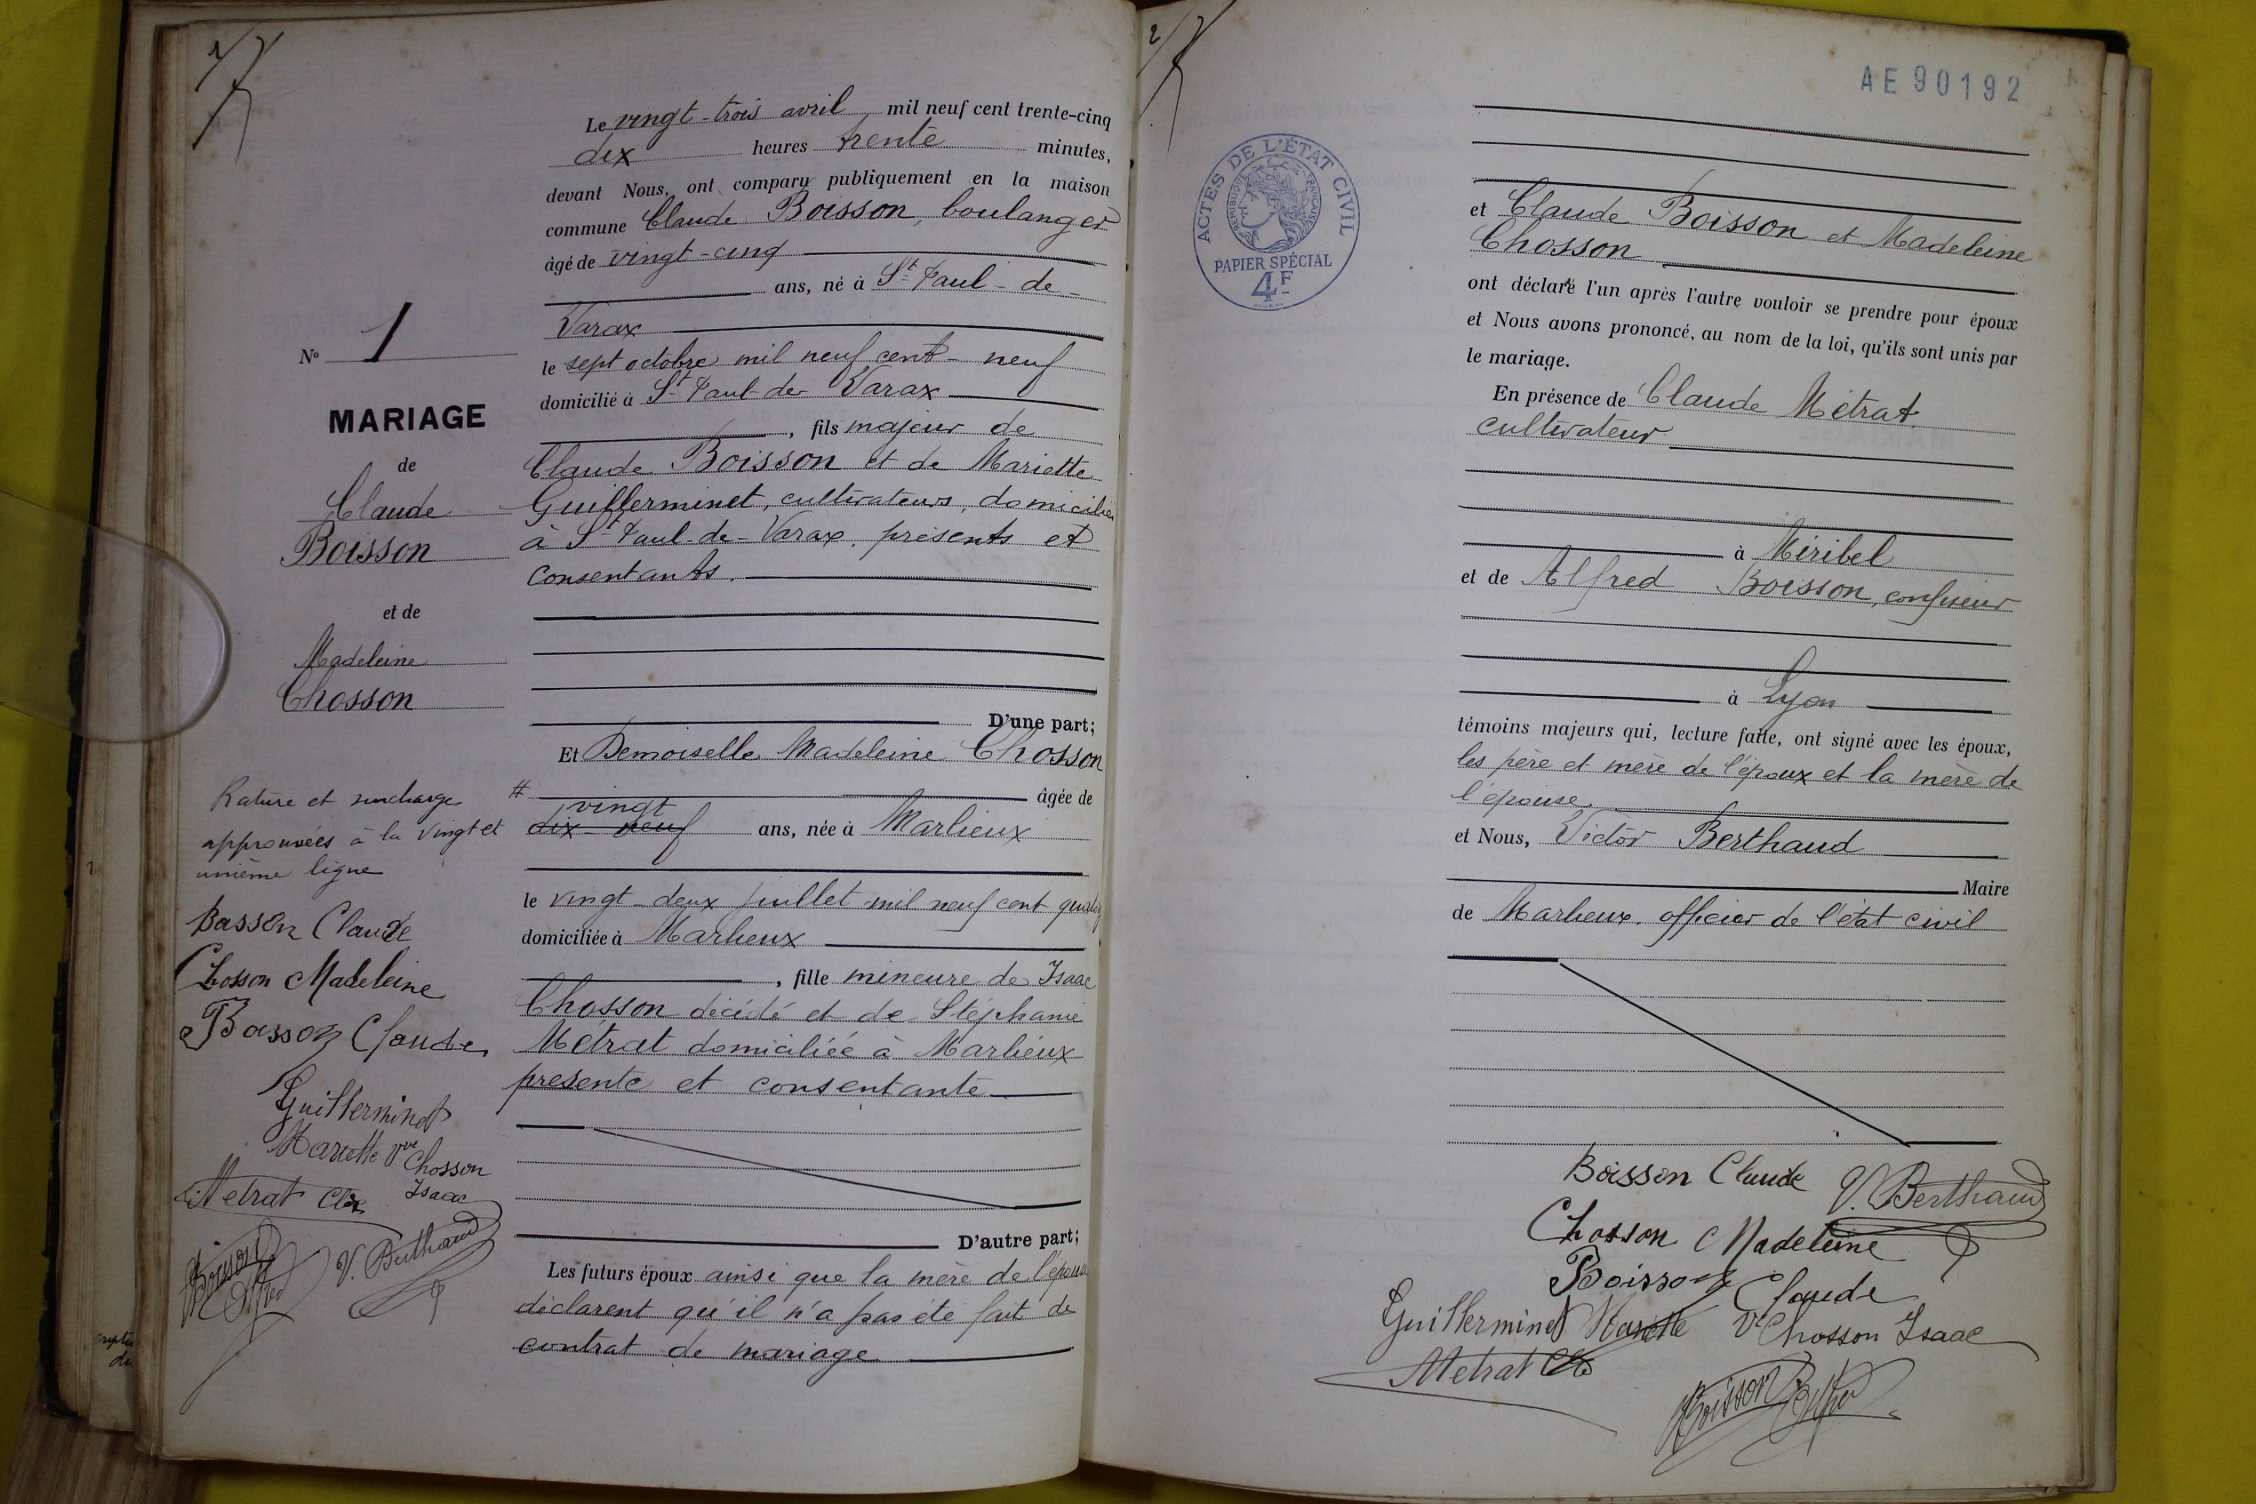 Le vingt-trois avril mil neuf cent trente-cinq
dix heures trente minutes,
devant Nous, ont comparu publiquement en la maison
commune Claude Boisson, boulanger
âgé de vingt-cinq
ans, né à St Paul-de-
Varax
le sept octobre mil neuf cent-neuf
domicilié à St Paul-de Varax
, fils majeur de
Claude Boisson et de Mariette
Guillerminet, cultivateurs, domiciliés
à St Paul-de-Varax, présents et
consentants.
D'une part;
Et Demoiselle Madeleine Chosson
# âgée de
vingt
dix-neuf ans, née à Marlieux
le vingt-deux juillet mil neuf cent quatorze
domiciliée à Marlieux
, fille mineure de Isaac
Chosson décédé et de Stéphanie
Métrat domiciliée à Marlieux
présente et consentante
D'autre part;
Les futurs époux ainsi que la mère de l'épouse
déclarent qu'il n'a pas été fait de
contrat de mariage
No 1
MARIAGE
de
Claude
Boisson
et de
Madeleine
Chosson
Rature et surcharge
approuvées à la vingt et
unième ligne
Boisson Claude
Chosson Madeleine
Boisson Claude
Guillerminet
Mariette Vve Chosson
Isaac
Metrat Cde
Boisson
Alfred
V. Berthaud
2
AE 90192
ACTES DE L'ÉTAT CIVIL
RÉPUBLIQUE FRANÇAISE
PAPIER SPÉCIAL
4F
et Claude Boisson et Madeleine
Chosson
ont déclaré l'un après l'autre vouloir se prendre pour époux
et Nous avons prononcé, au nom de la loi, qu'ils sont unis par
le mariage.
En présence de Claude Métrat
cultivateur
à Miribel
et de Alfred Boisson, confiseur
à Lyon
témoins majeurs qui, lecture faite, ont signé avec les époux,
les père et mère de l'époux et la mère de
l'épouse.
et Nous, Victor Berthaud
Maire
de Marlieux, officier de l'état civil
Boisson Claude
V. Berthaud
Chosson Madeleine
Boisson Claude
Guillerminet Mariette Ve Chosson Isaac
Metrat Cde
Boisson Alfred